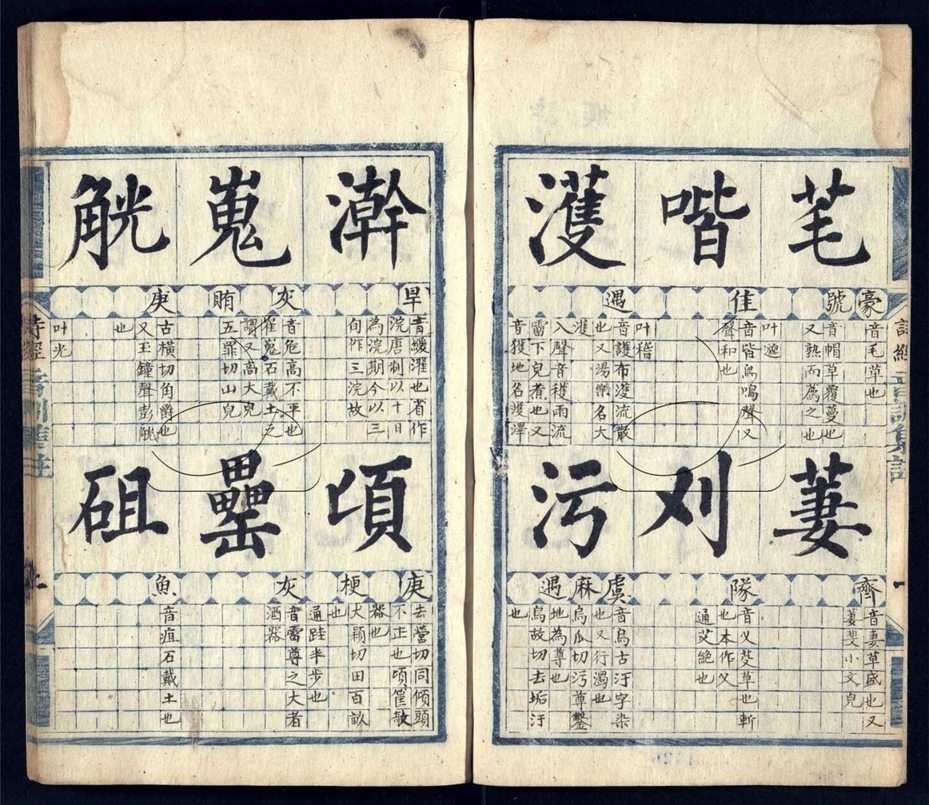 詩經音訓集註
芼
豪
號
音毛草也
音帽草覆蔓也
又熟而為之也
喈
佳
叶
音皆鳥鳴聲又
聲和也
叶稽
濩
遇
音護布濩流散
也又湯樂名大
濩
入聲音穫雨流
霤下皃煮也又
音獲地名濩澤
萋
齊
音妻草盛也又
萋斐小文皃
刈
隊
音乂芟草也斬
也本作乂
通艾絶也
污
虞
麻
遇
音烏古汙字染
也又行濁也
烏瓜切污尊鑿
地為尊也
烏故切去垢汙
也
澣
旱
音緩濯也省作
浣唐制以十日
為浣期今以三
旬作三浣故
嵬
灰
賄
音危高不平也
崔嵬石戴土之
謂又高大皃
五罪切山皃
觥
庚
古橫切角爵也
又玉鐘聲彭觥
也
叶光
頃
庚
梗
去營切同傾頭
不正也頃筐欹
器也
犬穎切田百畝
也
通跬半步也
罍
灰
音雷尊之大者
酒器
砠
魚
音疽石戴土也
詩經音訓集註